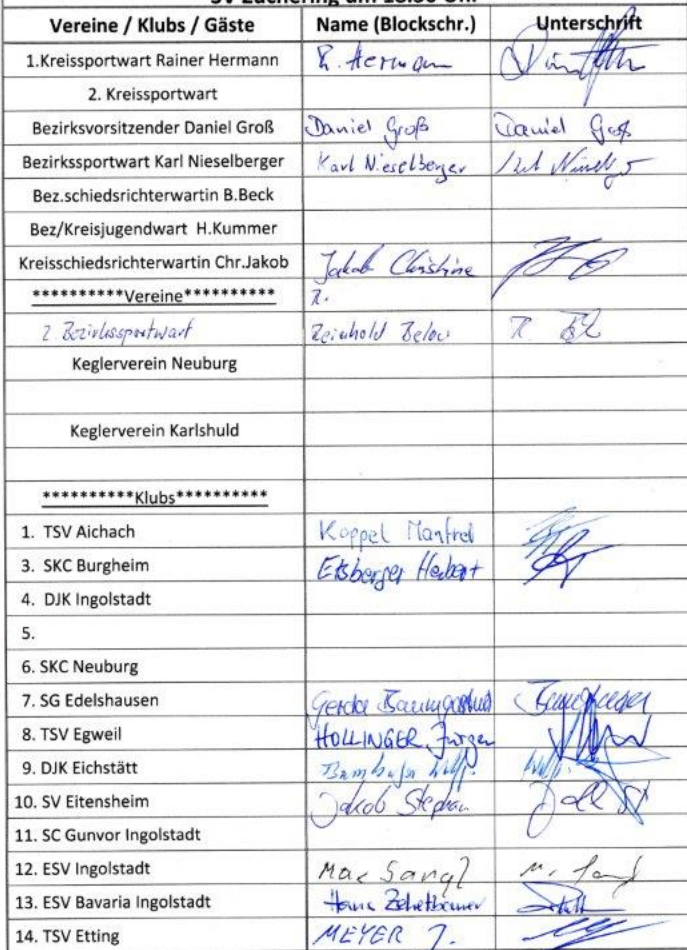 SV Zuchering um 18.30 Uhr
Vereine / Klubs / Gäste Name (Blockschr.) Unterschrift
1.Kreissportwart Rainer Hermann R. Hermann
2. Kreissportwart
Bezirksvorsitzender Daniel Groß Daniel Groß Daniel Groß
Bezirkssportwart Karl Nieselberger Karl Nieselberger
Bez.schiedsrichterwartin B.Beck
Bez/Kreisjugendwart H.Kummer
Kreisschiedsrichterwartin Chr.Jakob Jakob Christine
**********Vereine**********
2. Bezirkssportwart Reinhold Below
Keglerverein Neuburg
Keglerverein Karlshuld
**********Klubs**********
1. TSV Aichach Koppel Manfred
3. SKC Burgheim Herbert
4. DJK Ingolstadt
5.
6. SKC Neuburg
7. SG Edelshausen Gerda
8. TSV Egweil HOLLINGER Jürgen
9. DJK Eichstätt
10. SV Eitensheim Jakob Stephan
11. SC Gunvor Ingolstadt
12. ESV Ingolstadt Max Sangl
13. ESV Bavaria Ingolstadt Hans
14. TSV Etting MEYER J.